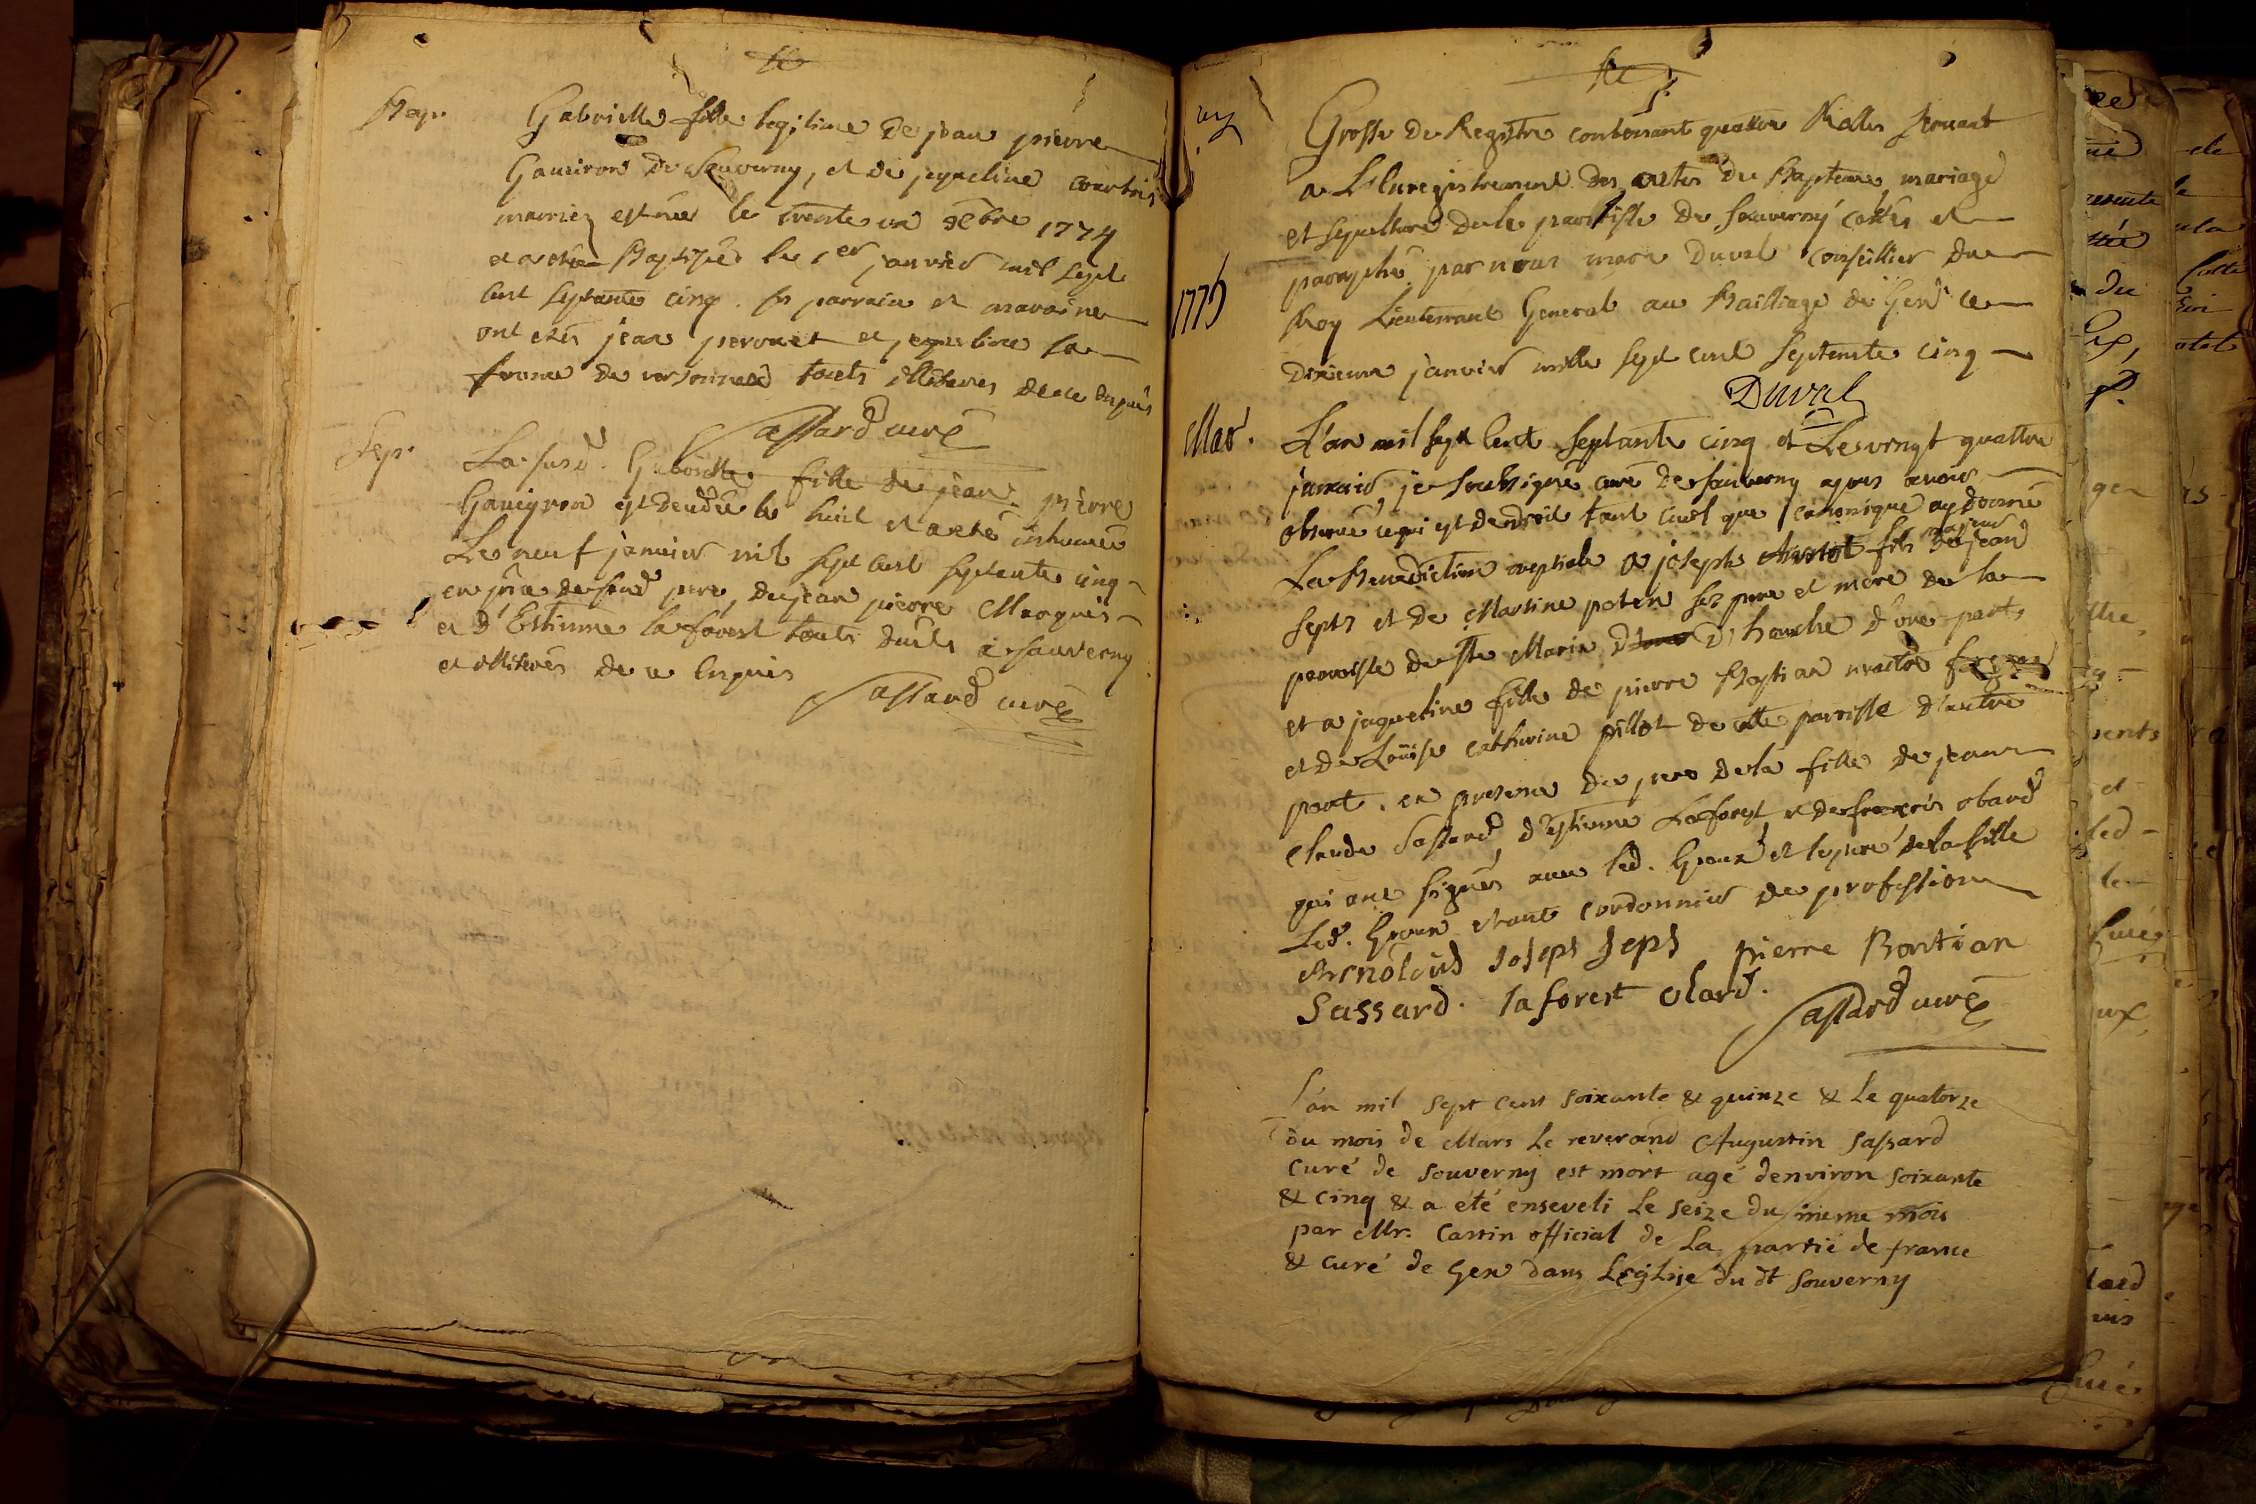 Bap.
Gabrielle fille legitime de jean pierre
Gaueiron de Sauverny, et de jaqueline courtois
mariez est née le trente un xbre 1774
et a eté Baptisée le 1er janvier mil sept
cent septante cinq. ses parrain et maraine
ont etés jean peronet et jaqueline sa
femme de versonnex touts illiterés de ce enquis
Sassard curé
Sep.
La susd. Gabrielle fille de jean pierre
Gaueyron est decedée le huit et a eté inhumée
Le neuf janvier mil sept cent septante cinq
en pñce de son d. pere, de jean pierre Marquis
et d'Estienne laforest touts deux de Sauverny
et illiterés de ce enquis
Sassard curé
1775
Grosse de Registre contenant quattre Rolles servant
a L'Enregistrement des actes de Bapteme, mariage
et sepulture de la paroisse de Sauverny cottés et
paraphé par nous marc Duval conseiller du
Roy Lieutenant General au Bailliage de Gex ce
dixieme janvier mille sept cent septente cinq
Duval
Mar.
L'an mil sept cent septante cinq et Le vingt quattre
janvier, je soussigné curé de sauverny apres avoir
observé ce qui est de droit tant civil que canonique ay donné
La Benediction nuptiale a joseph fils majeur de jean
Septs et de Martine poten ses pere et mere de la
parroisse de Ste Marie d'une part
et a jaqueline fille de pierre Bastian
et de Loüise catherine pillot de cette paroisse d'autre
part. en presence du pere de la fille de jean
claude Sassard, d'estienne Laforest et de françois obard
qui ont signés avec led. Epoux et le pere de la fille
Led. Epoux etant cordonnier de profession
Arnoldus Joseps Seps pierre Bastian
Sassard. laforest obard.
Sassard curé
L'an mil sept cent soixante & quinze & le quatorze
du mois de Mars le reverand Augustin Sassard
curé de Souverny est mort agé d'environ soixante
& cinq & a eté enseveli le seize du meme mois
par Mr. Castin official de la partie de france
& curé de Gex dans L'eglise du dt Souverny